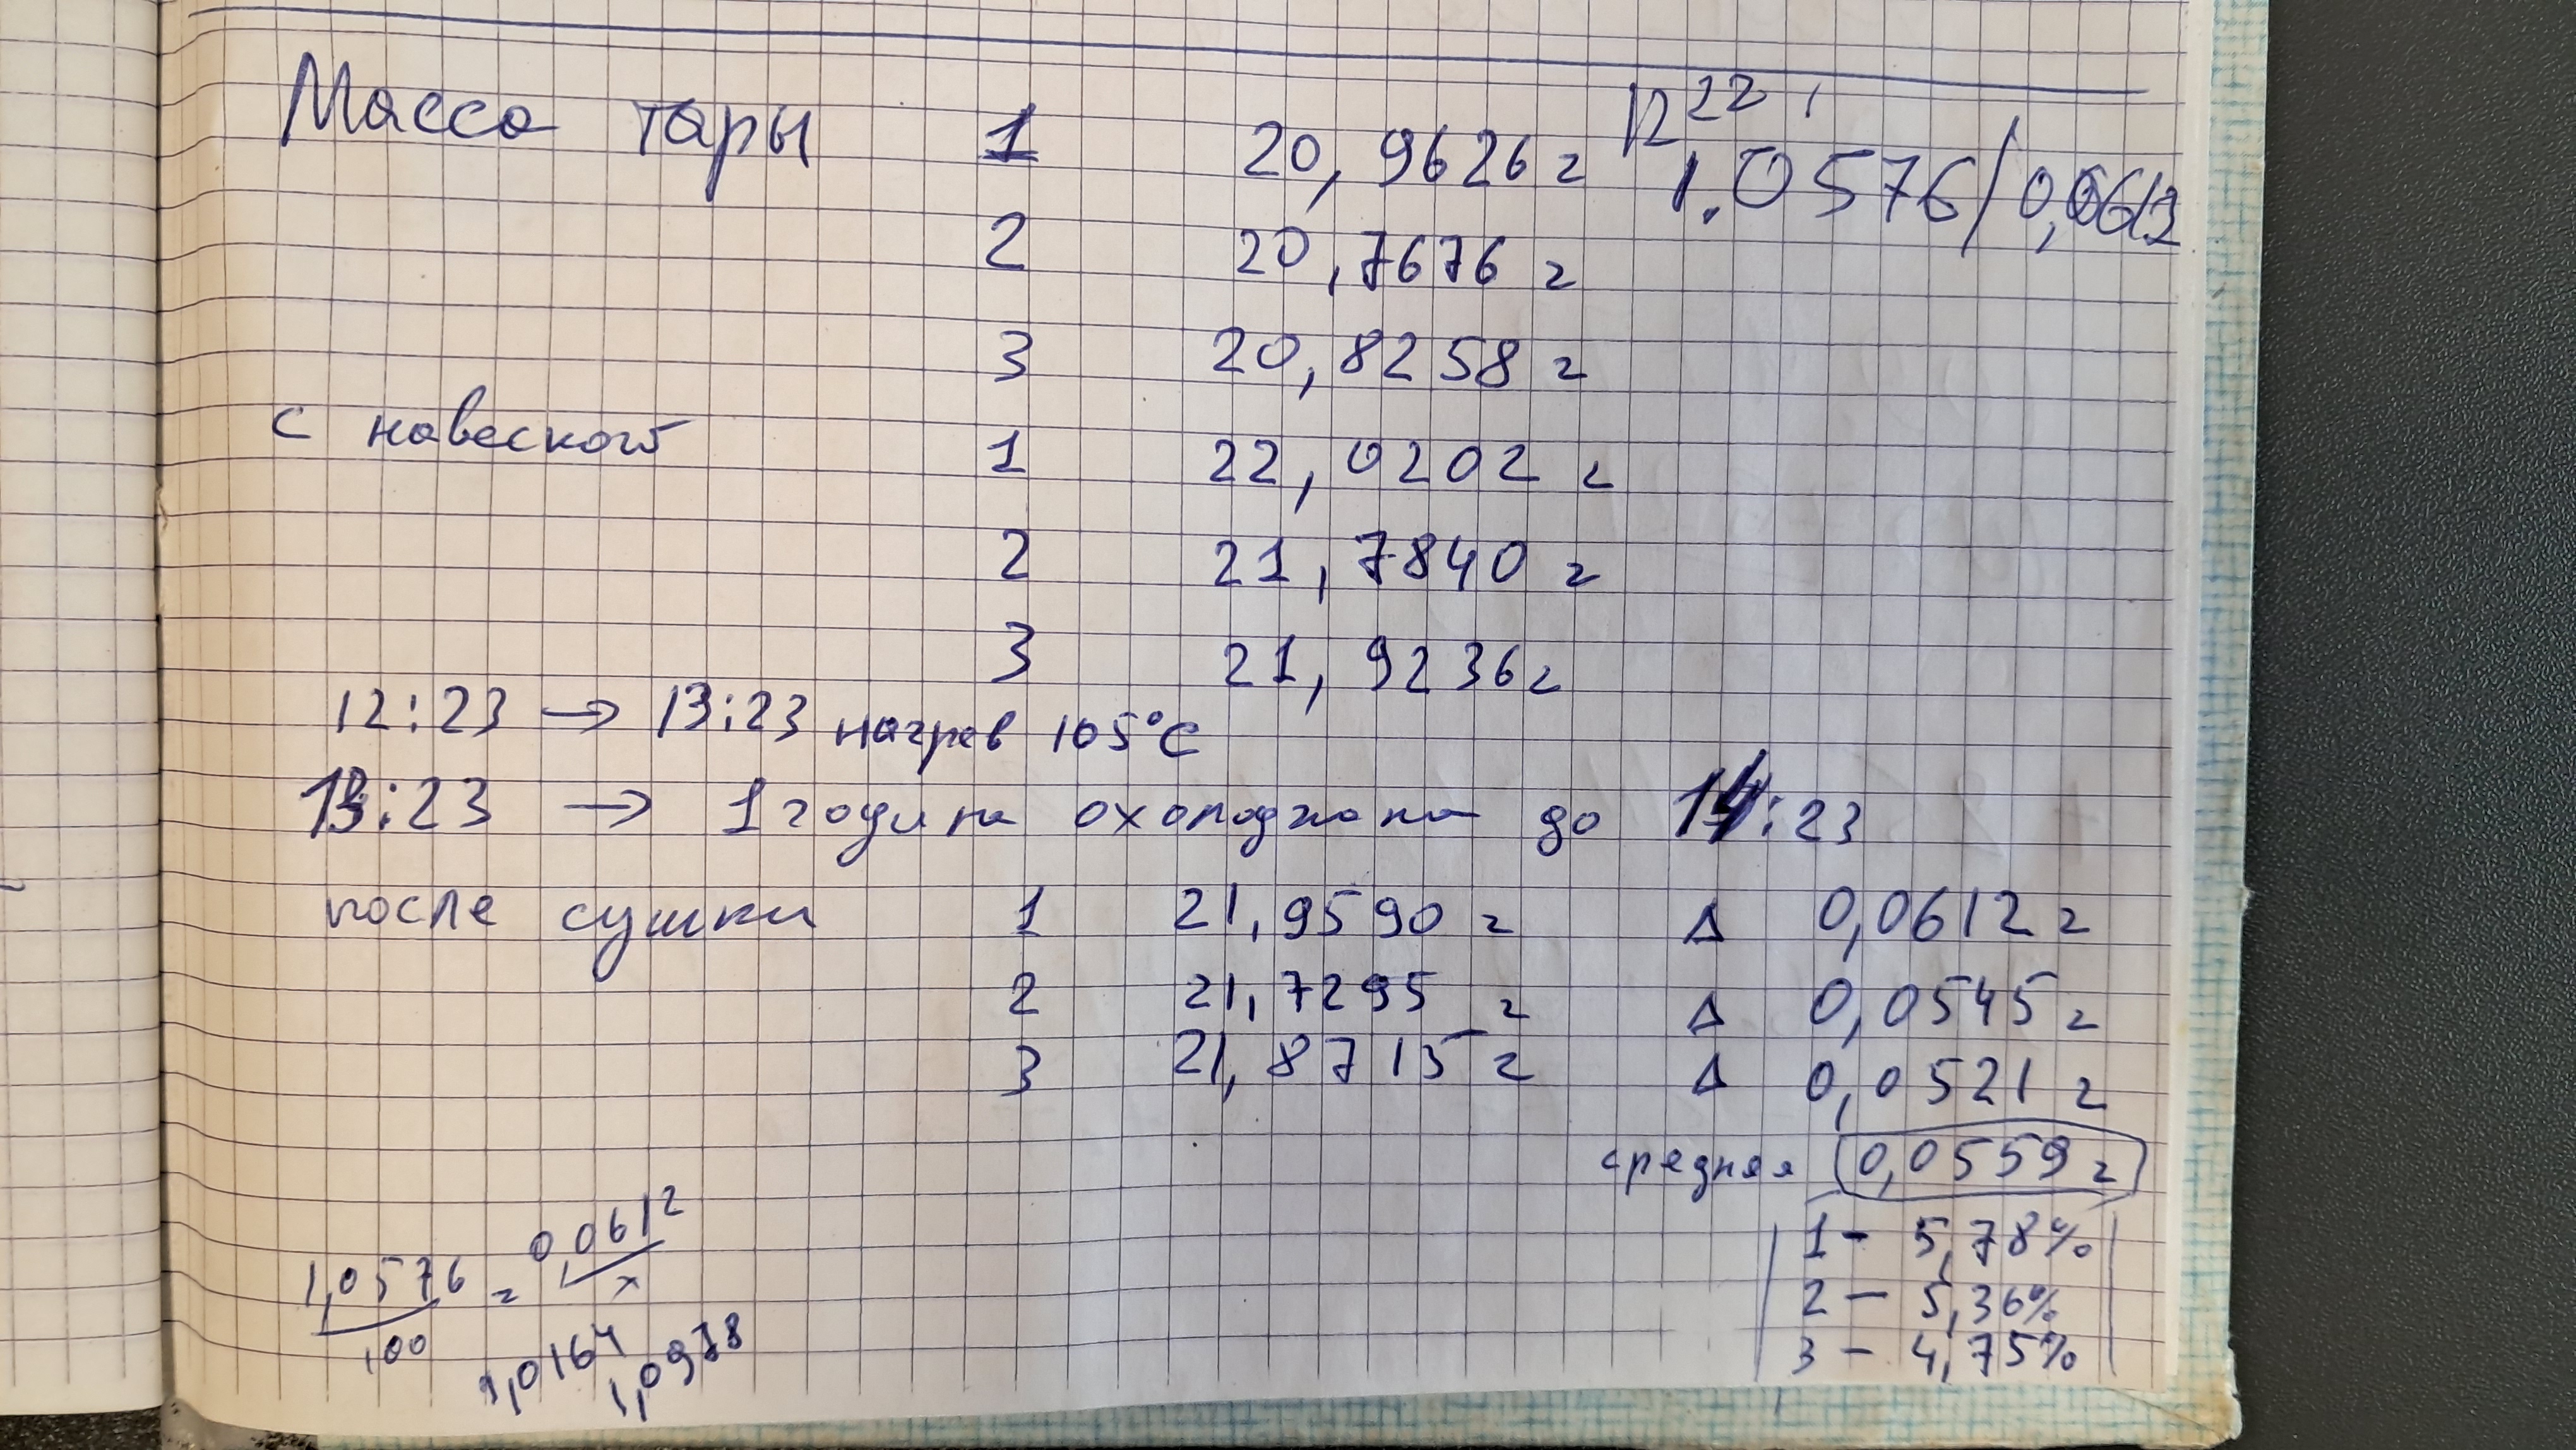 Масса тары 1 20,9626 г
1.0576/0,0612
2 20,7676 г
3 20,8258 г
с навеской 1 22,0202 г
2 21,7840 г
3 21,9236 г
12:23 → 13:23 нагрев 105°C
13:23 → 1 година охолоджена до 14:23
после сушки 1 21,9590 г Δ 0,0612 г
2 21,7295 г Δ 0,0545 г
3 21,8715 г Δ 0,0521 г
средняя 0,0559 г
1 - 5,78%
2 - 5,36%
3 - 4,75%
1,0576/100 = 0,0612/x
1,0164
1,0978